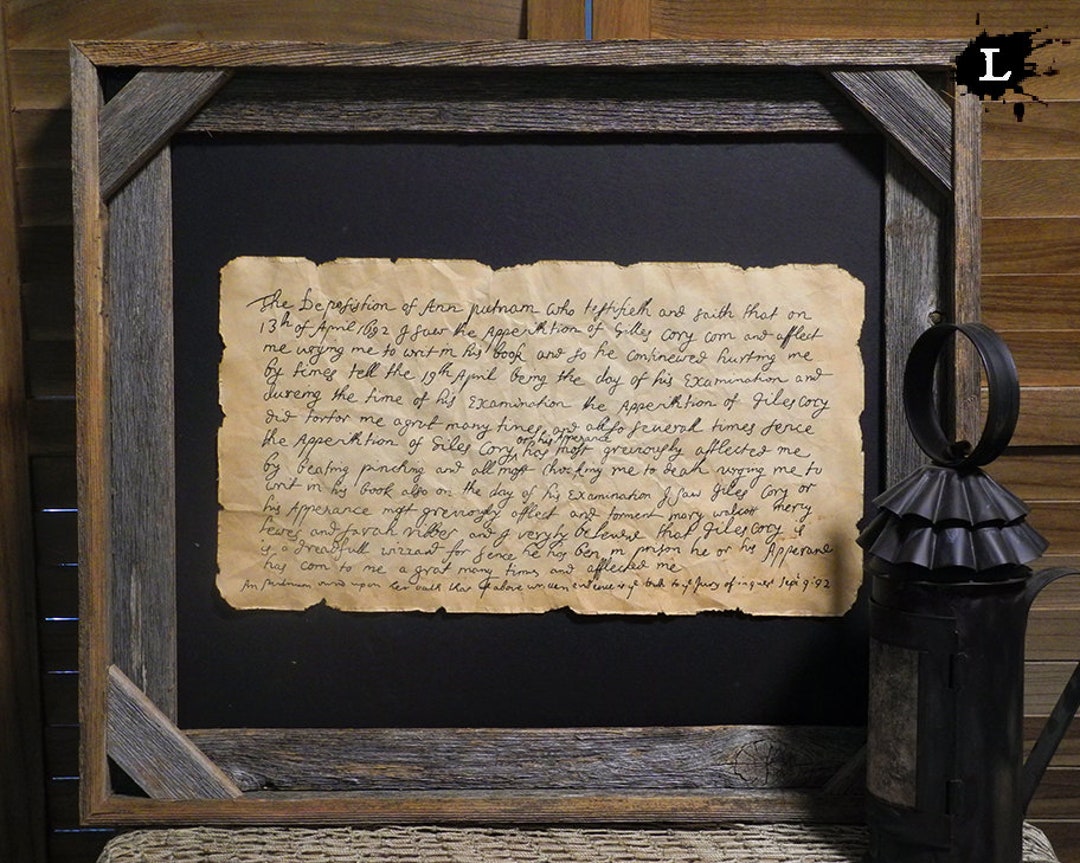 L
The Deposistion of Ann putnam who testifieth and saith that on
13th of April 1692 I saw the Apperishtion of Gilles Cory com and afflect
me urging me to writ in his book and so he contineued hurting me
by times tell the 19th April being the day of his Examination and
dureing the time of his Examination the Apperishtion of Giles Cory
did tortor me a grat many times and allso severall times sence
the Apperishtion of Giles Cory or his Apperance has most greviously afflected me
by beating pinching and allmost Choaking me to death urging me to
writ in his book also on the day of his Examination I saw Giles Cory or
his Apperance most greviously afflect and torment mary walcott mercy
lewes and sarah vibber and I veryly beleueve that Giles Cory is
is a dreadfull wizzard for sence he has ben in prison he or his Apperance
has com to me a grat many times and afflected me
An Putnam owned upon her oath that above written evidence is ye truth to ye Jury of inquest Sept 9: 92